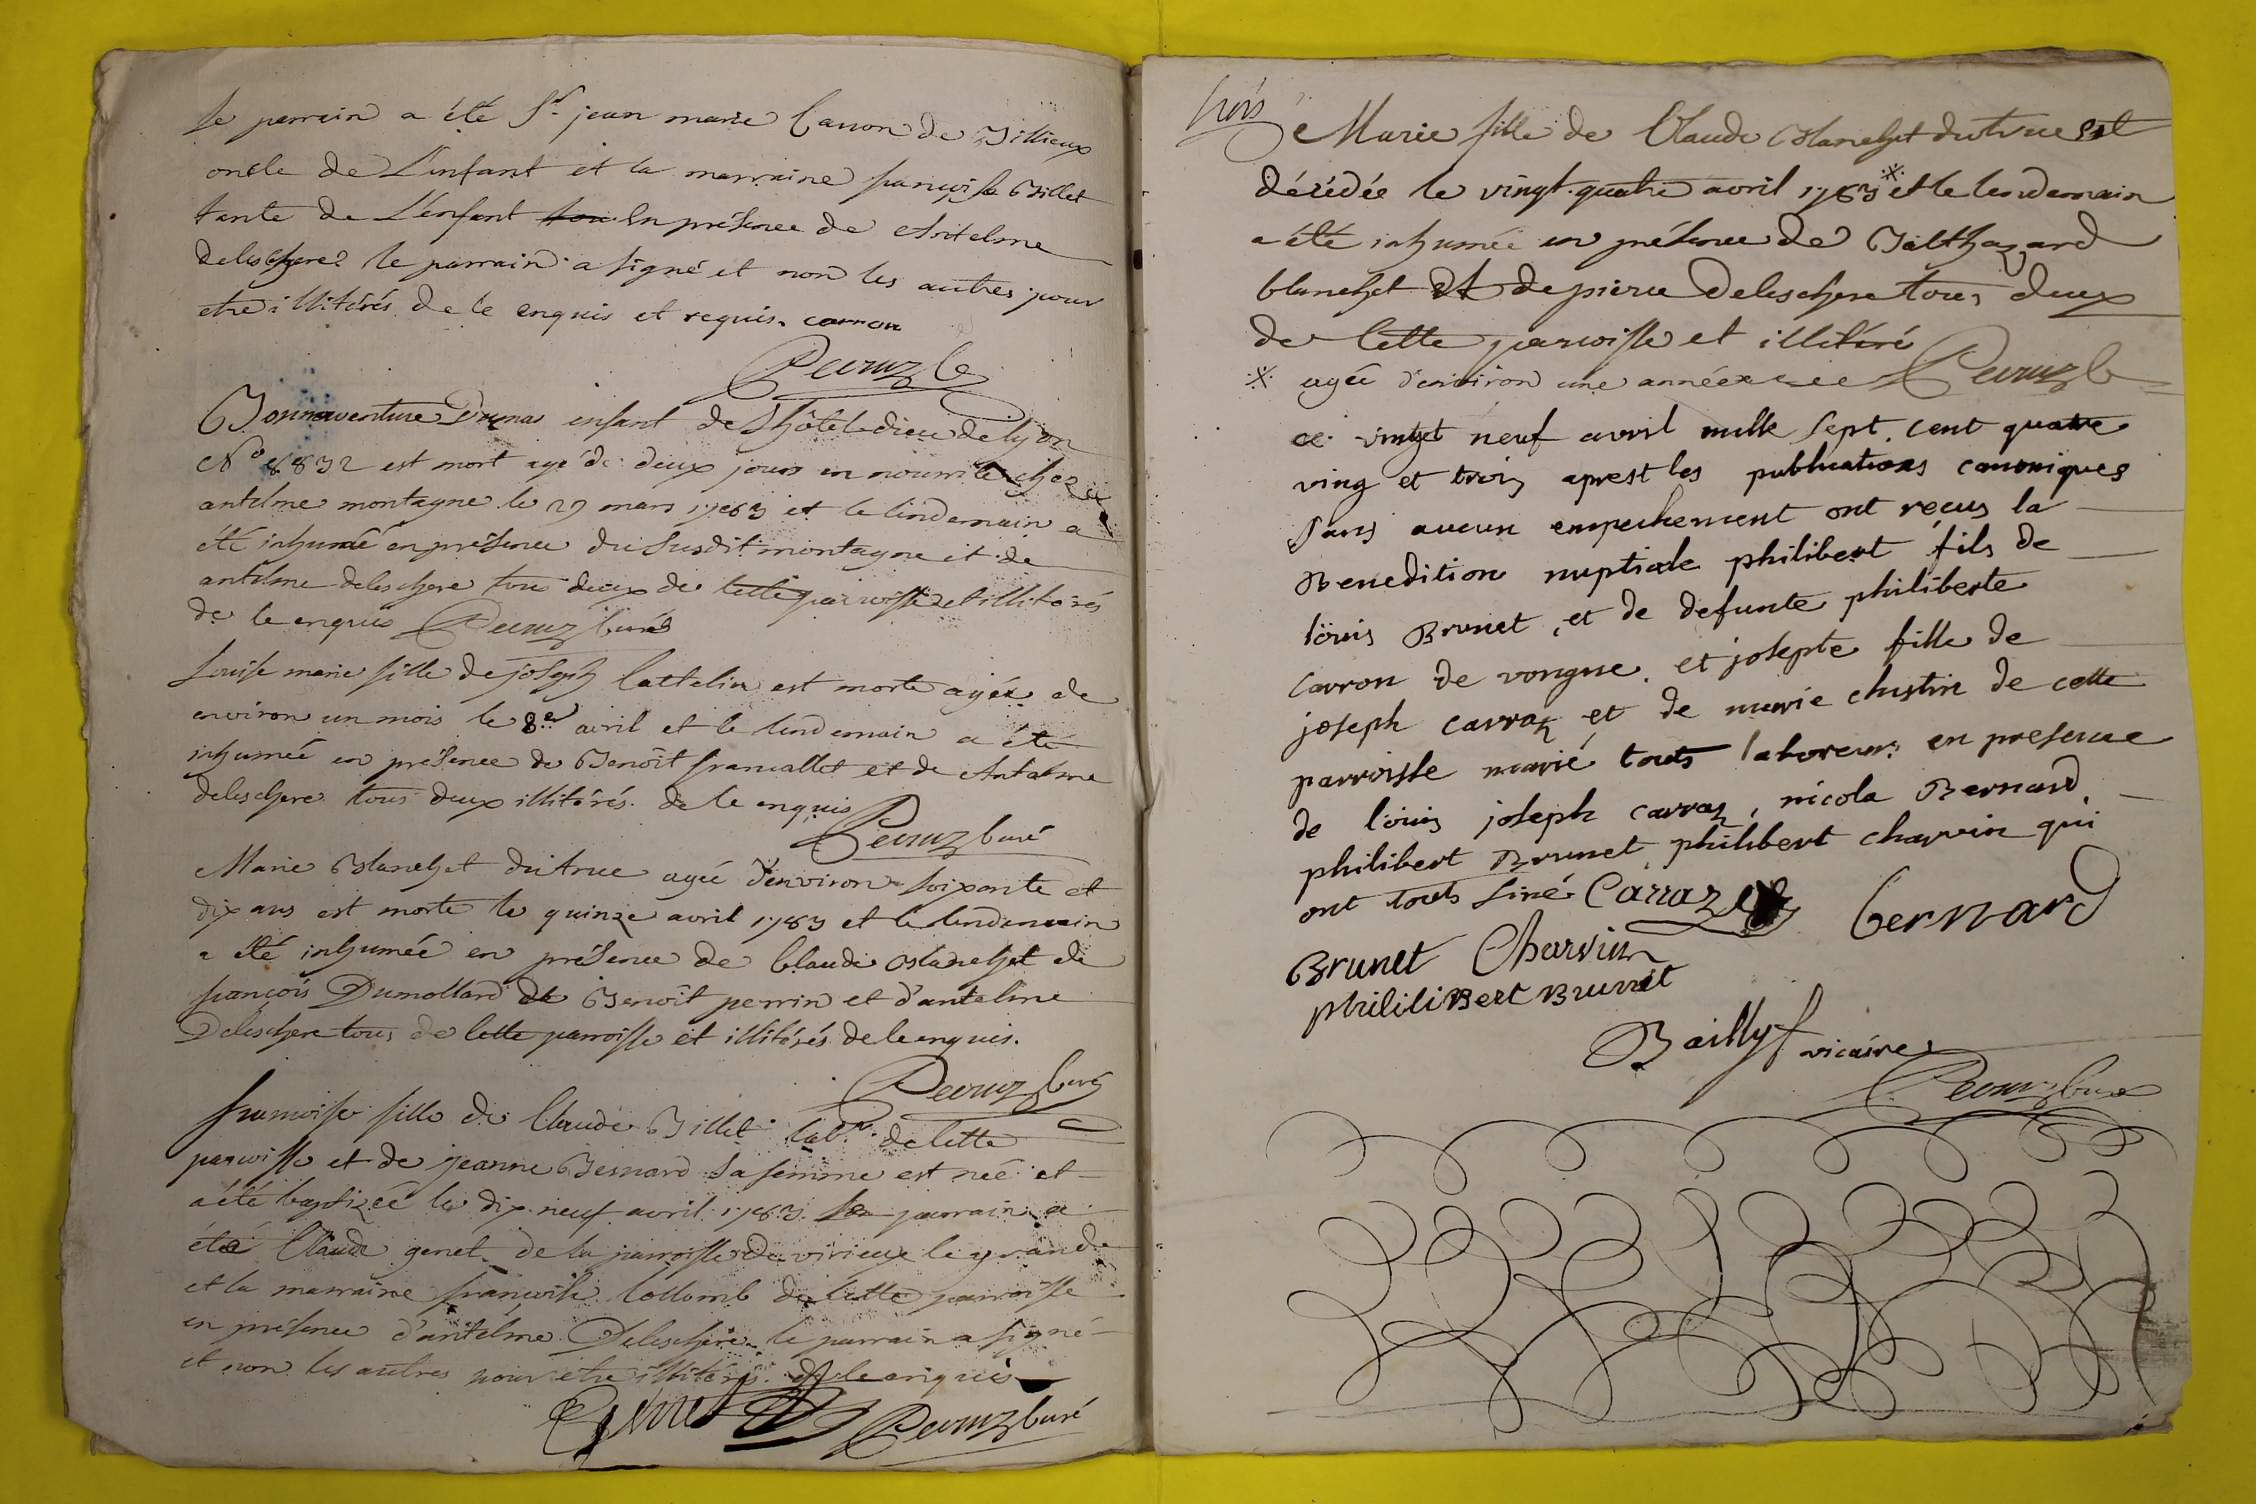 le parrain a été Sr. jean marie Carron de Billieux
oncle de L'enfant et la marraine françoise Billet
tante de L'enfant en présence de Antelme
deleschere le parrain a signé et non les autres pour
etre illitérés de ce enquis et requis. carron
Pecruz c
Bonnaventure Dumas enfant de L'hôtel dieu de lyon
No 8832 est mort agé de deux jours en nourrice chez
antelme montagne le 29 mars 1783 et le lendemain a
été inhumé en présence du susdit montagne et de
antelme deleschere tous deux de cette parroisse et illitérés
de ce enquis Pecruz curé
Louise marie fille de joseph Cattelin est morte agée de
environ un mois le 8er avril et le lendemain a été
inhumée en présence de Benoît francallet et de Antelme
deleschere tous deux illitérés de ce enquis
Pecruz curé
Marie Blanchet du truc agée d'environ soixante et
dix ans est morte le quinze avril 1783 et le lendemain
a été inhumée en présence de Claude Blanchet de
françois Dumollard de Benoît perrin et d'antelme
Deleschere tous de cette parroisse et illitérés de ce enquis.
Pecruz curé
francoise fille de Claude Billet labr. de cette
parroisse et de jeanne Bernard sa femme est née et
a été baptizée le dix neuf avril 1783 le parrain a
été Claude genet de la parroisse de virieux le grand
et la marraine françoise Collomb de cette parroisse
en présence d'antelme Deleschere le parrain a signé
et non les autres pour etre illitérés de ce enquis
genet Pecruz curé
trois
Marie fille de Claude Blanchet du truc est
décédée le vingt-quatre avril 1783 ※ et le lendemain
a été inhumée en présence de Balthazard
blanchet et de pierre deleschere tous deux
de cette parroisse et illitéré
※ agée d'environ une année Pecruz c
ce vingt neuf avril mille sept cent quatre
ving et trois aprest les publications canoniques
sans aucun empechement ont reçus la
Benedition nuptiale philibert fils de
loüis Brunet, et de defunte philiberte
carron de vongne. et josepte fille de
joseph carraz et de marie chustin de cette
parroisse marié touts laboreurs en presence
de loüis joseph carraz, nicola Bernard
philibert Brunet, philibert charvin qui
ont touts siné Carraz bernard
Brunet Charvin
phililiBert Brunet
Bailly vicaire
Pecruz curé